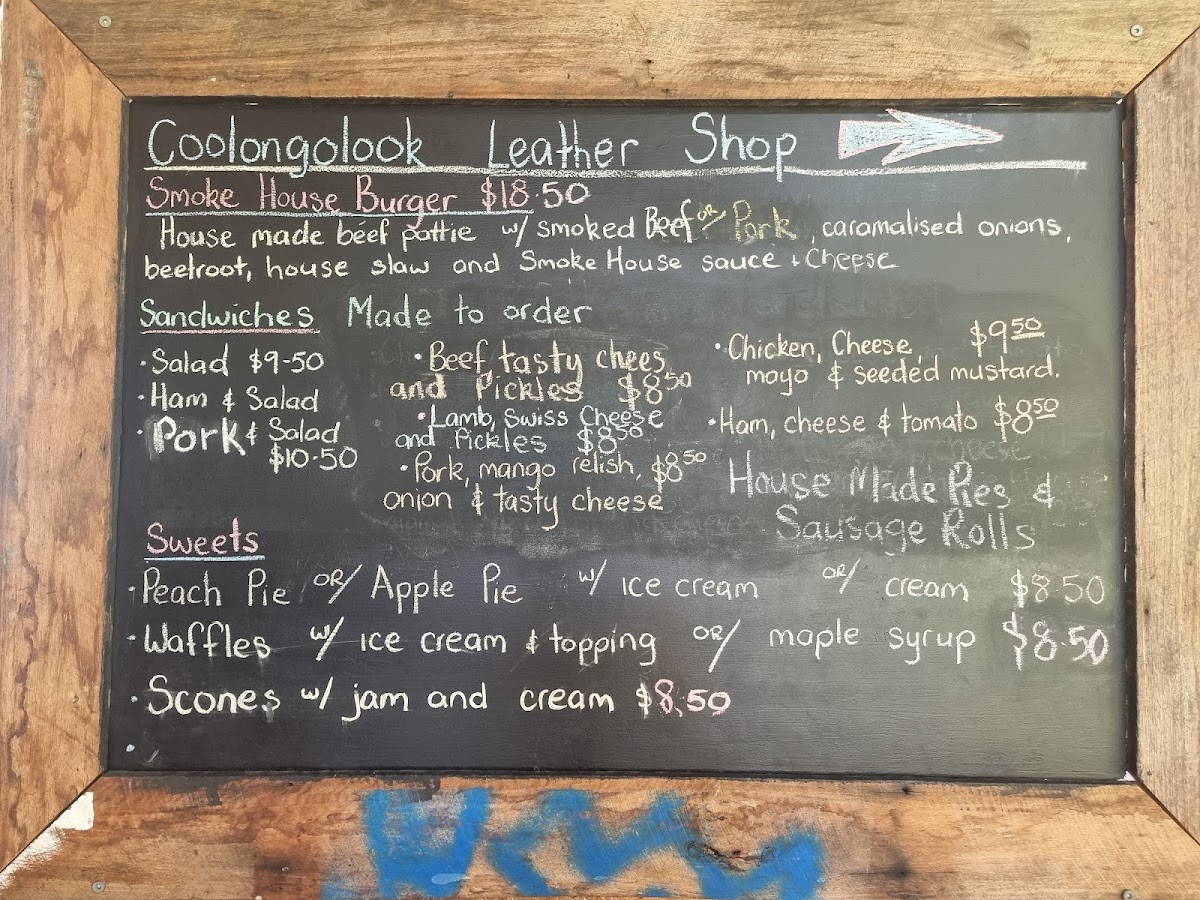 Coolongolook Leather Shop
Smoke House Burger $18.50
House made beef pattie w/ smoked Beef OR/ Pork, caramalised onions,
beetroot, house slaw and Smoke House sauce + Cheese
Sandwiches Made to order
· Salad $9-50
· Ham & Salad
· Pork & Salad
$10.50
· Beef, tasty chees
and Pickles $8.50
· Lamb, Swiss Cheese
and Pickles $8.50
· Pork, mango relish, $8.50
onion & tasty cheese
· Chicken, Cheese, $9.50
mayo & seeded mustard.
· Ham, cheese & tomato $8.50
House Made Pies &
Sausage Rolls
Sweets
· Peach Pie OR/ Apple Pie w/ ice cream OR/ cream $8.50
· Waffles w/ ice cream & topping OR/ maple syrup $8.50
· Scones w/ jam and cream $8.50